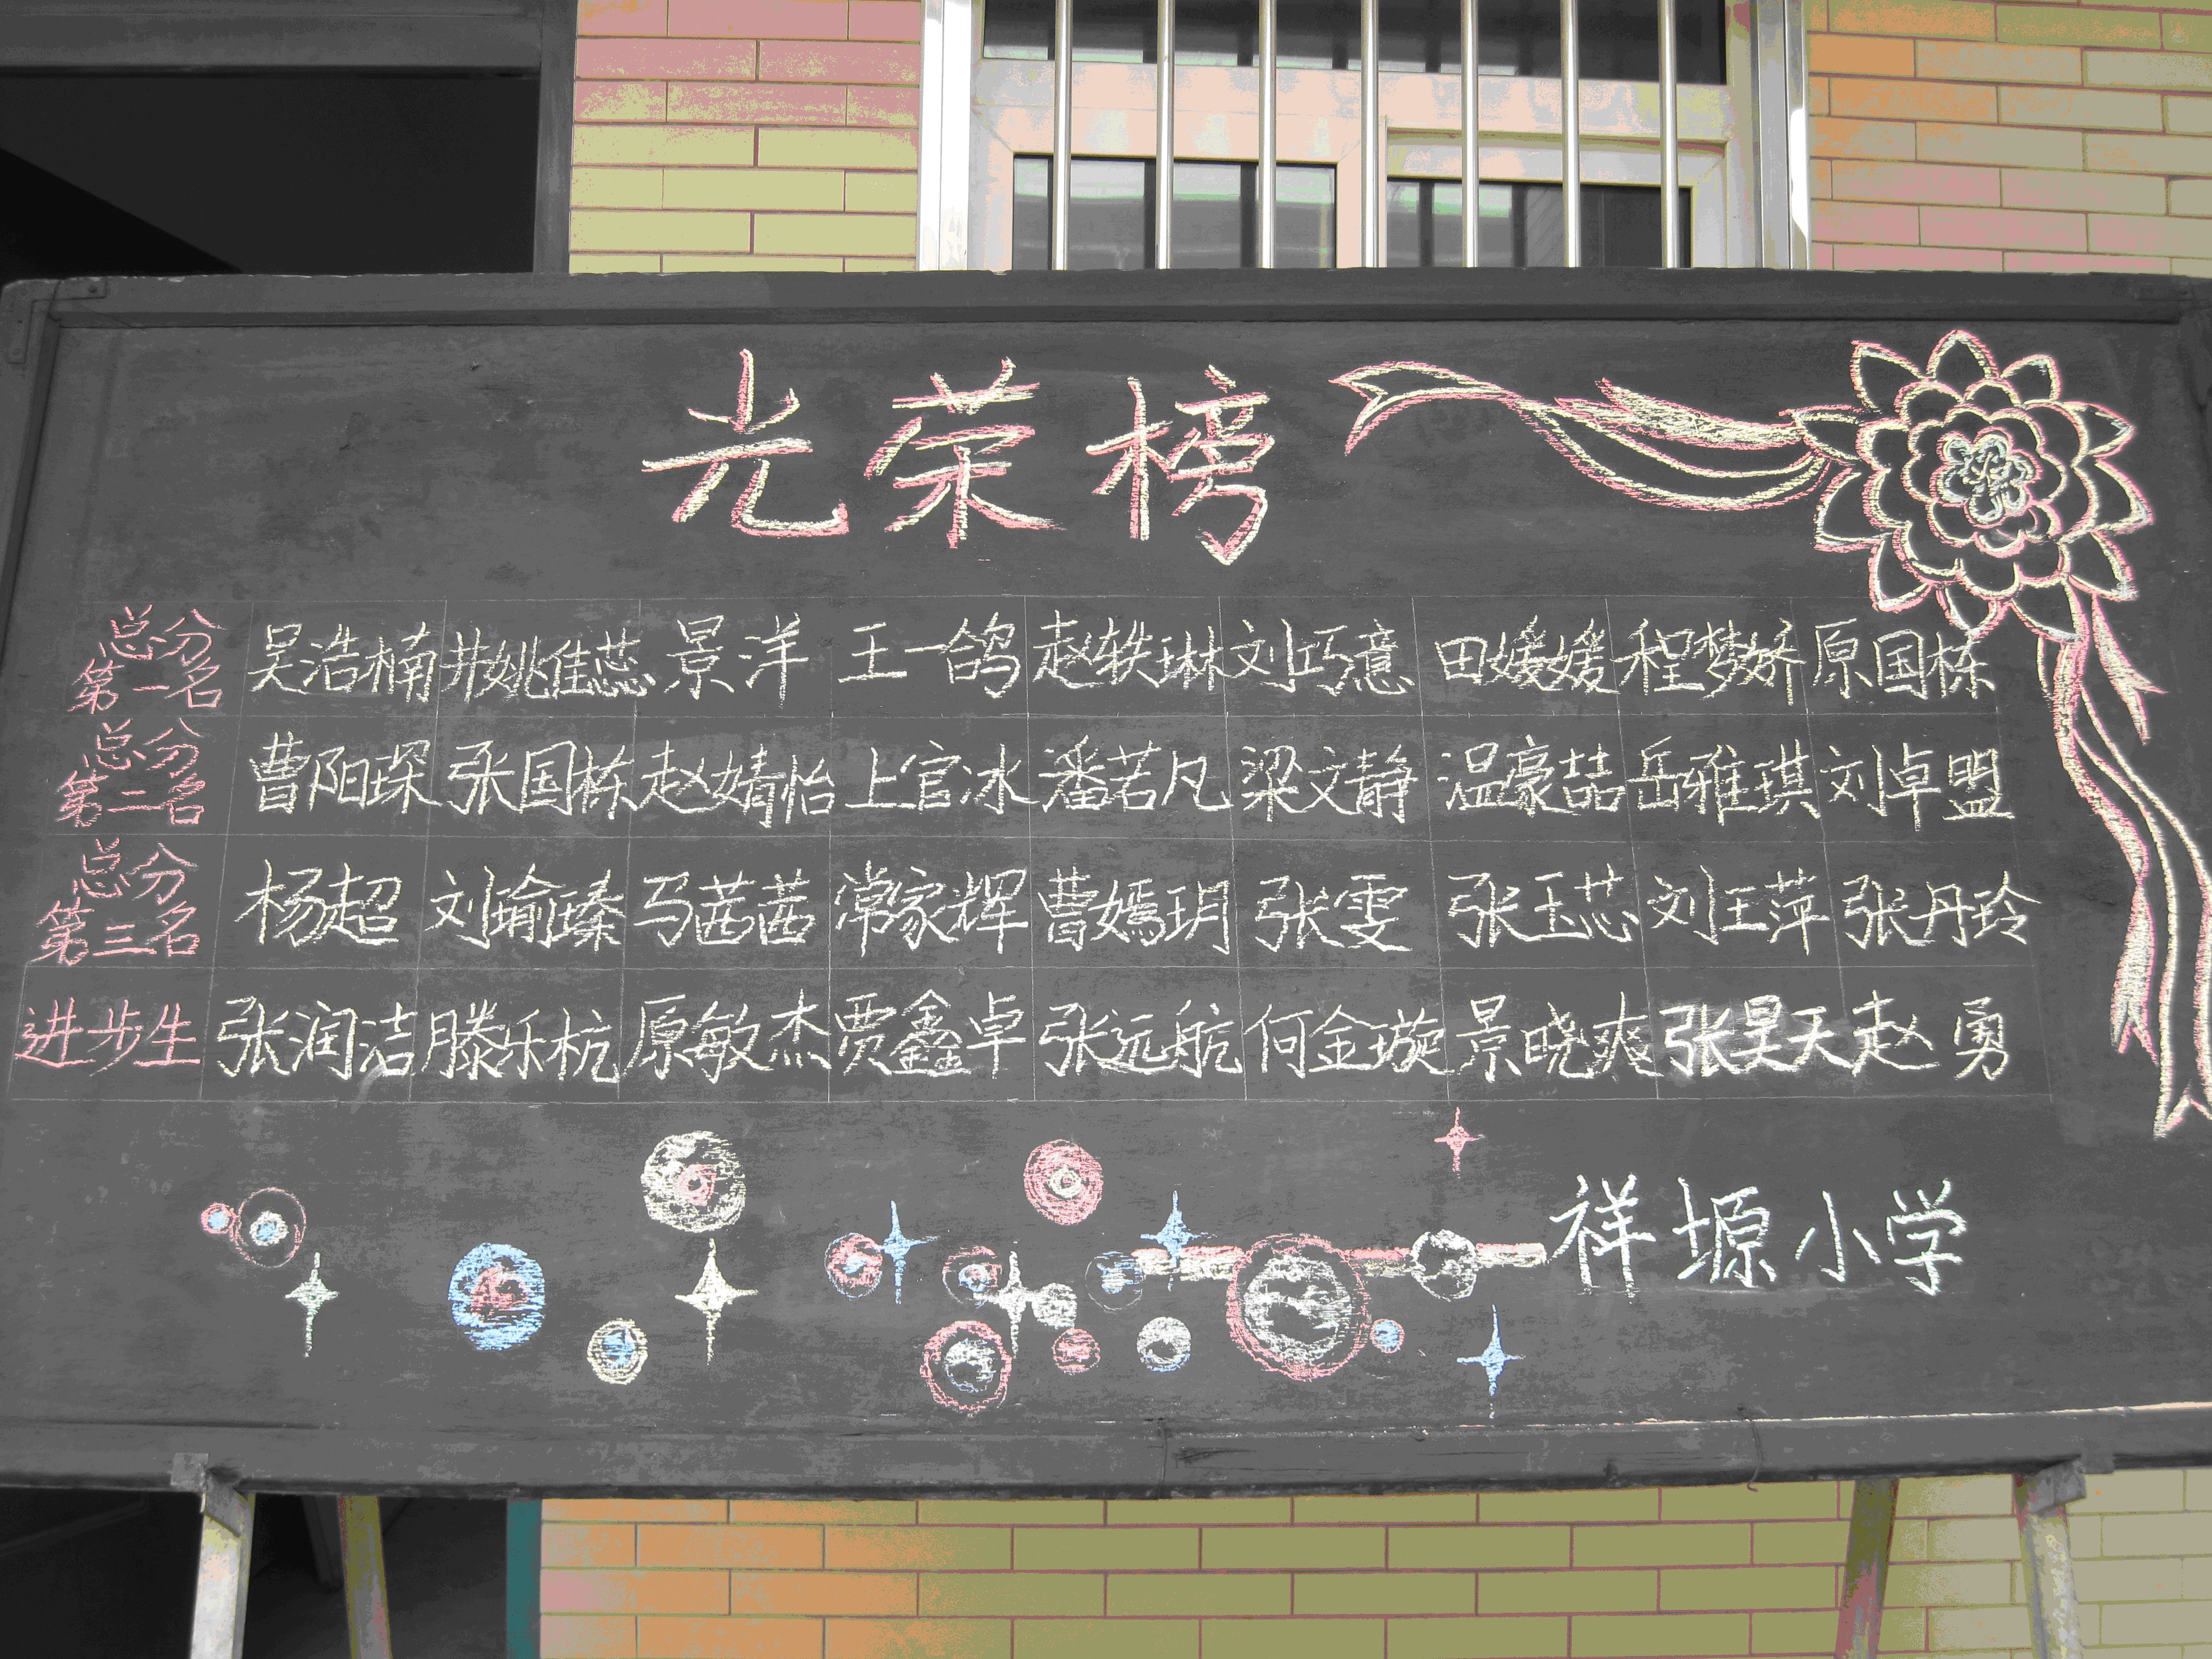 光荣榜
总分第一名 吴浩楠 井姚佳蕊 景洋 王一鸽 赵轶琳 刘巧意 田媛媛 程梦娇 原国栋
总分第二名 曹阳琛 张国栋 赵婧怡 上官冰 潘若凡 梁文静 温豪喆 岳雅琪 刘卓盟
总分第三名 杨超 刘瑜臻 马茜茜 常家辉 曹嫣玥 张雯 张玉芯 刘王萍 张丹玲
进步生 张润洁 滕乐杭 原敏杰 贾鑫卓 张远航 何金璇 景晓爽 张昊天 赵勇
祥塬小学